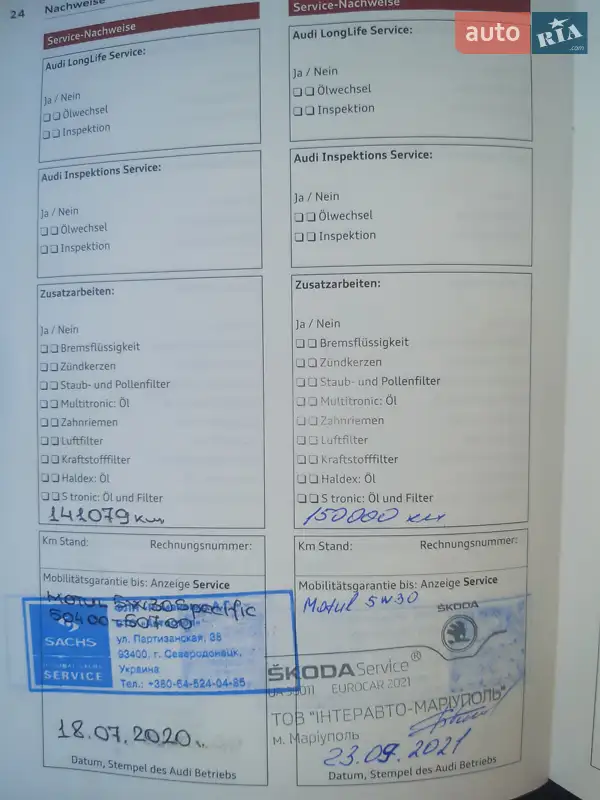 24
Nachweise
Service-Nachweise
Audi LongLife Service:
Ja / Nein
Ölwechsel
Inspektion
Audi Inspektions Service:
Ja / Nein
Ölwechsel
Inspektion
Zusatzarbeiten:
Ja / Nein
Bremsflüssigkeit
Zündkerzen
Staub- und Pollenfilter
Multitronic: Öl
Zahnriemen
Luftfilter
Kraftstofffilter
Haldex: Öl
S tronic: Öl und Filter
141079 км
Km Stand: Rechnungsnummer:
Mobilitätsgarantie bis: Anzeige Service
Motul 5w30 Specific
50400-50700
SACHS
SERVICE
ул. Партизанская, 38
93400, г. Северодонецк,
Украина
Тел.: +380-64-524-04-85
18.07.2020
Datum, Stempel des Audi Betriebs
Service-Nachweise
Audi LongLife Service:
Ja / Nein
Ölwechsel
Inspektion
Audi Inspektions Service:
Ja / Nein
Ölwechsel
Inspektion
Zusatzarbeiten:
Ja / Nein
Bremsflüssigkeit
Zündkerzen
Staub- und Pollenfilter
Multitronic: Öl
Zahnriemen
Luftfilter
Kraftstofffilter
Haldex: Öl
S tronic: Öl und Filter
150000 км
Km Stand: Rechnungsnummer:
Mobilitätsgarantie bis: Anzeige Service
Motul 5w30
ŠKODA
ŠKODA Service®
EUROCAR 2021
ТОВ "ІНТЕРАВТО-МАРІУПОЛЬ"
м. Маріуполь
23.09.2021
Datum, Stempel des Audi Betriebs
auto RIA .com